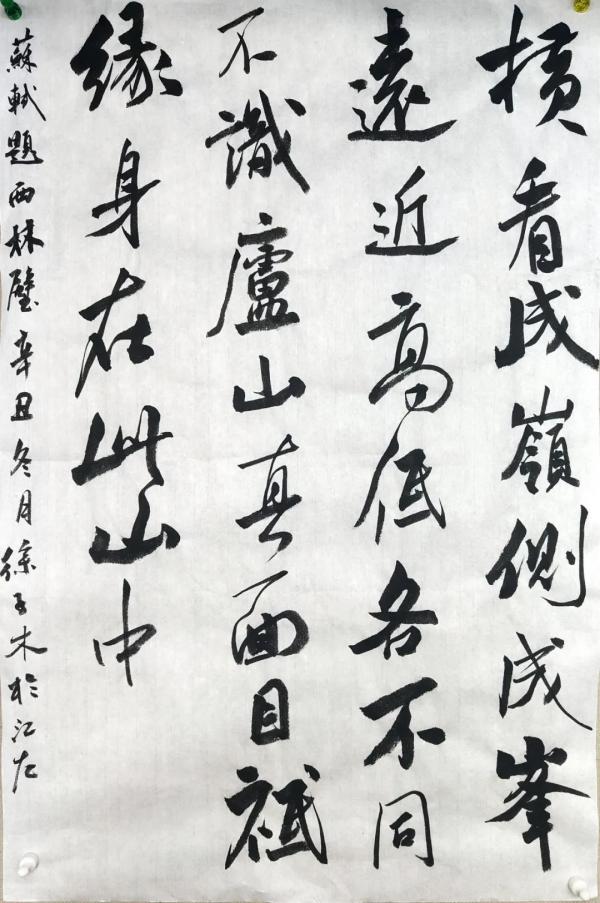 橫看成嶺側成峯
遠近高低各不同
不識廬山真面目祗
緣身在此山中
蘇軾題西林壁辛丑冬月徐子木於江左